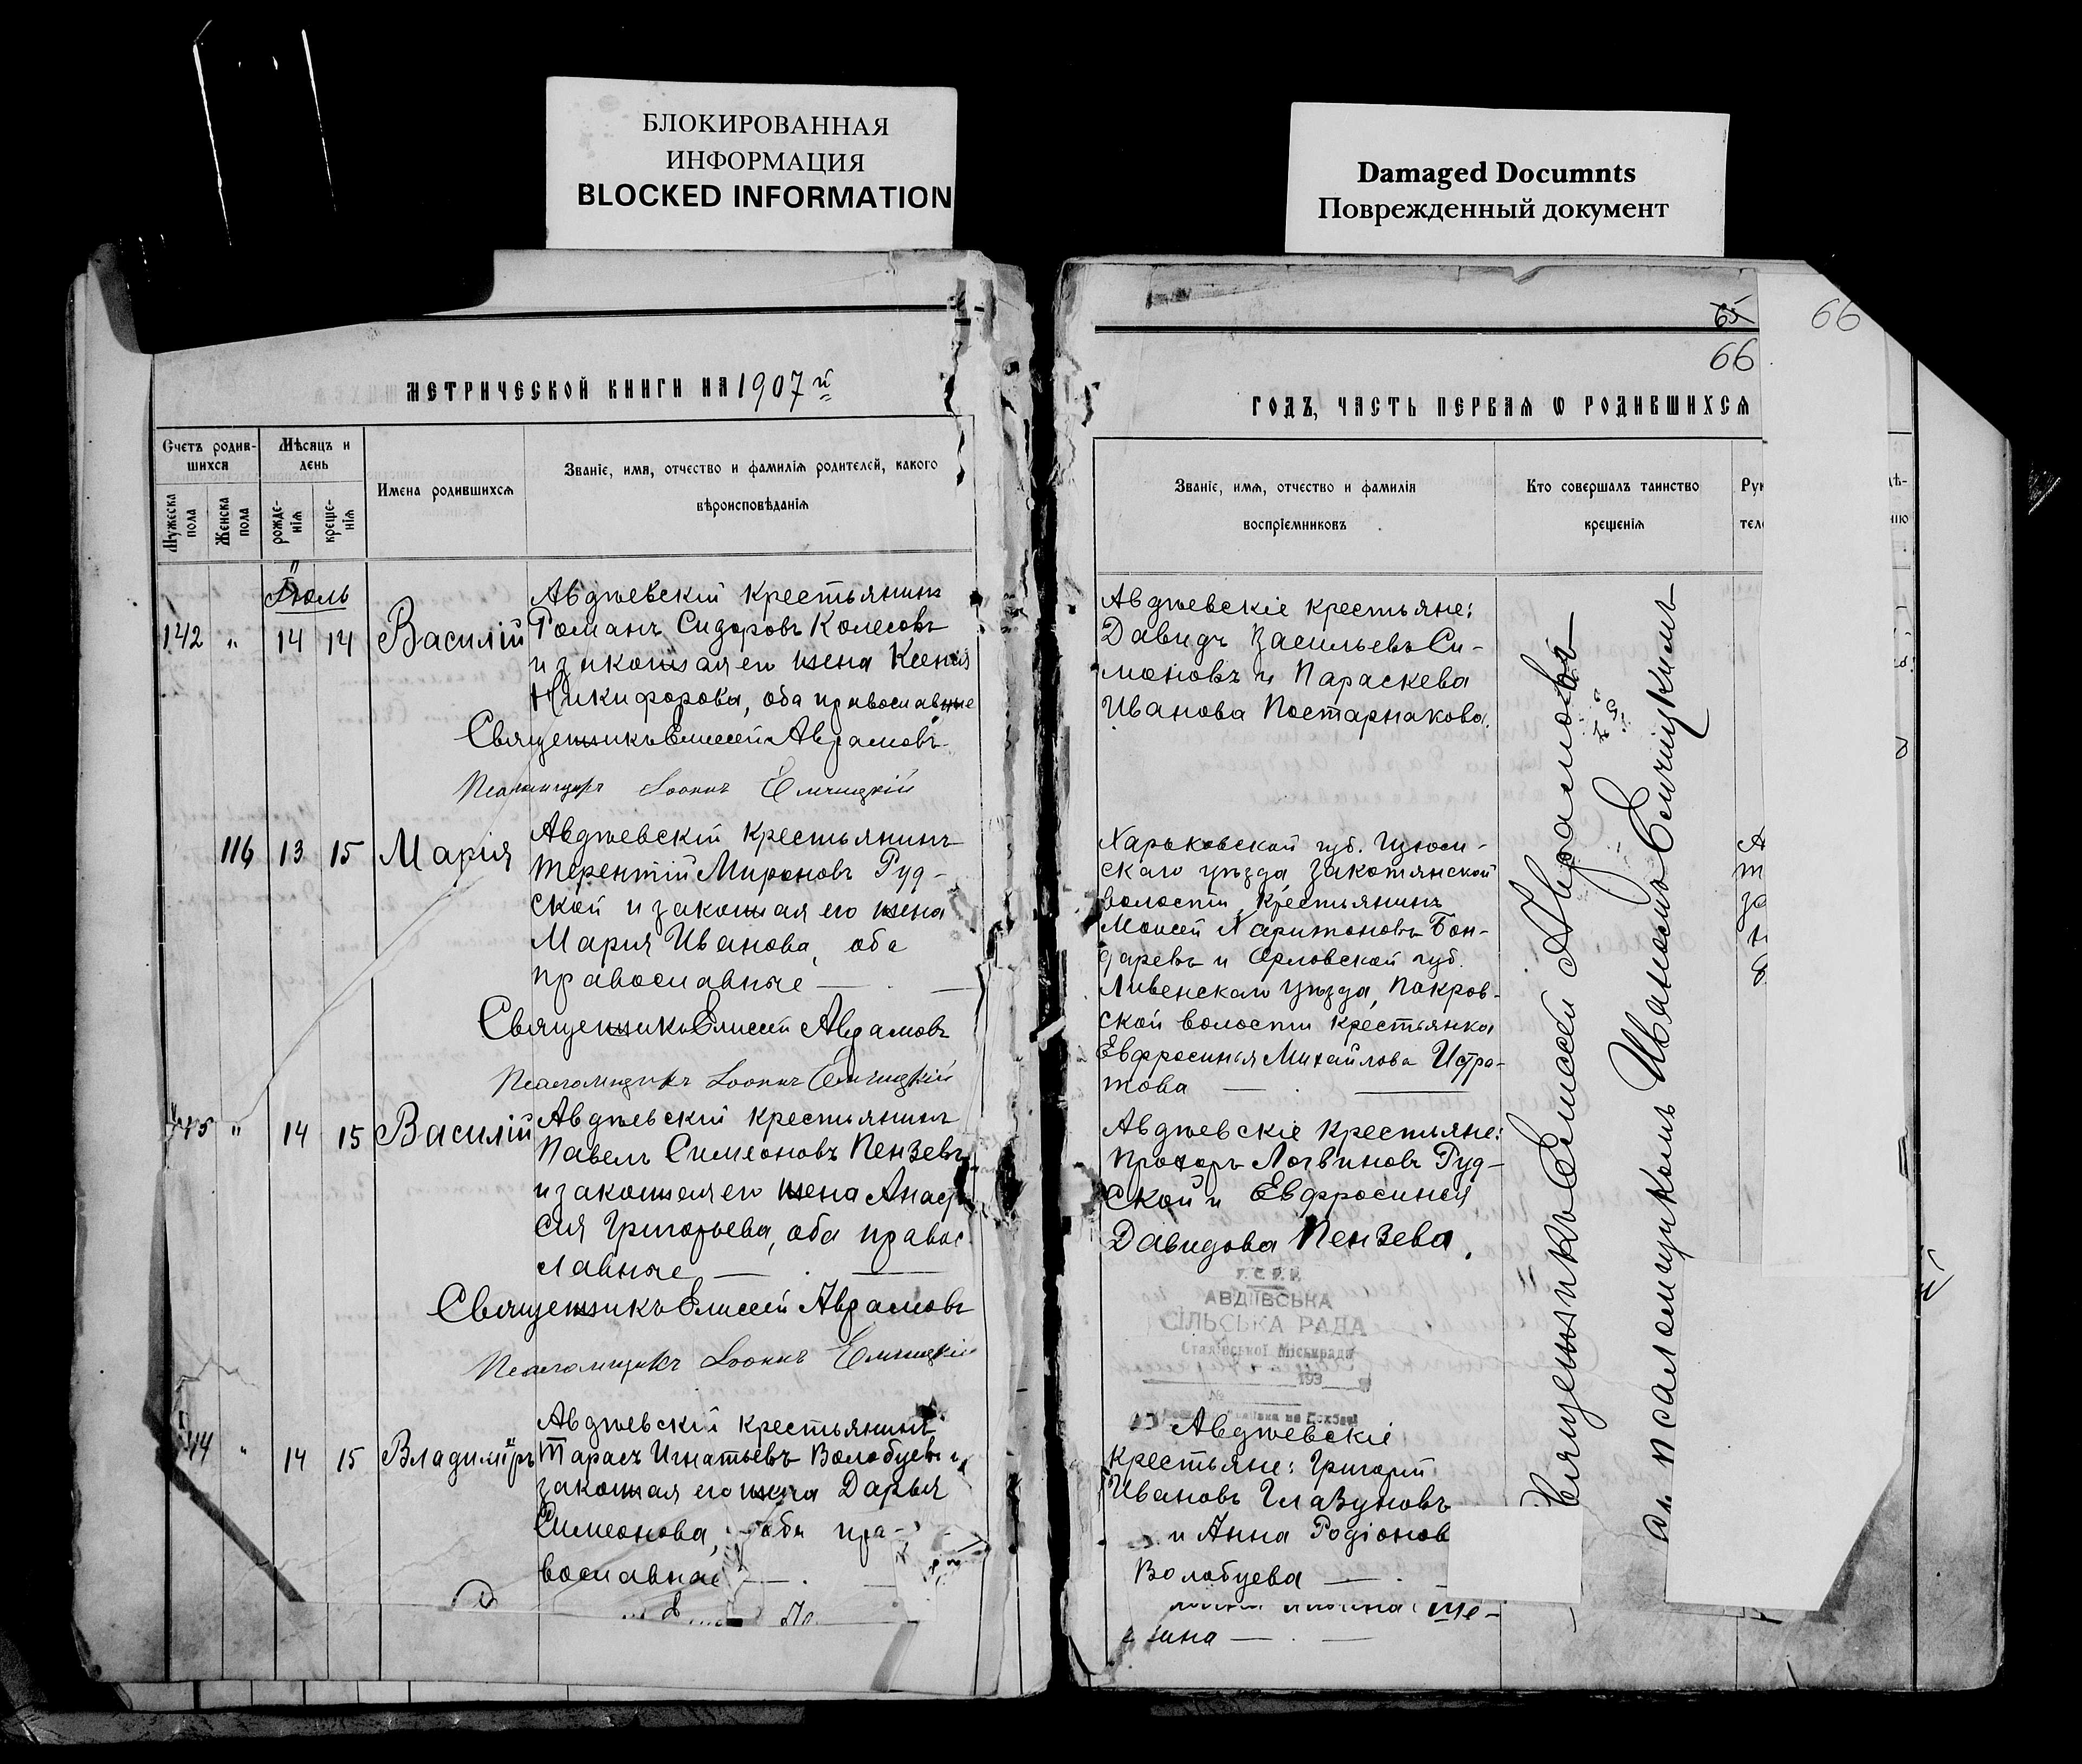 БЛОКИРОВАННАЯ
ИНФОРМАЦИЯ
BLOCKED INFORMATION
Damaged Documnts
Поврежденный документ
МЕТРИЧЕСКОЙ КНИГИ НА 1907 й
Счетъ родив-
шихся
Мѣсяцъ и
день
Мужеска
пола
Женска
пола
рожде-
нія
креще-
нія
Имена родившихся
Званіе, имя, отчество и фамилія родителей, какого
вѣроисповѣданія
Іюль
142 " 14 14 Василій
Авдѣевскій крестьянинъ
Романъ Сидоровъ Колесовъ
и законная его жена Ксенія
Никифорова, оба православные
Священникъ Елисей Аврамовъ
Псаломщикъ Іоаннъ Емчицкій
116 13 15 Марія
Авдѣевскій крестьянинъ
Терентій Мироновъ Руд-
ской и законная его жена
Марія Иванова, оба
православные
Священникъ Елисей Аврамовъ
Псаломщикъ Іоаннъ Емчицкій
" 14 15 Василій
Авдѣевскій крестьянинъ
Павелъ Симеоновъ Пензевъ
и законная его жена Анаста-
сія Григорьева, оба правос-
лавные
Священникъ Елисей Аврамовъ
Псаломщикъ Іоаннъ Емчицкій
44 " 14 15 Владиміръ
Авдѣевскій крестьянинъ
Тарасъ Игнатьевъ Волобуевъ и
законная его жена Дарья
Симеонова, оба пра-
вославные
65
66
66
ГОДЪ, ЧАСТЬ ПЕРВАЯ Ѡ РОДИВШИХСЯ
Званіе, имя, отчество и фамилія
воспріемниковъ
Кто совершалъ таинство
крещенія
Рук
тел
Авдѣевскіе крестьяне:
Давидъ Васильевъ Си-
моновъ и Параскева
Иванова Постарнакова.
Харьковской губ. Изюм-
скаго уѣзда Закотянской
волости, крестьянинъ
Моисей Харитоновъ Бон-
даревъ и Орловской губ.
Ливенскаго уѣзда, Покров-
ской волости крестьянка
Евфросинья Михайлова Истра-
това
Авдѣевскіе крестьяне:
Прохоръ Логвиновъ Руд-
ской и Евфросинья
Давидова Пензева.
У.С.Р.Р.
АВДІЇВСЬКА
СІЛЬСЬКА РАДА
Сталінської Міськради
193
№
Авдѣевскіе
крестьяне: Григорій
Ивановъ Глазуновъ
и Анна Родіонов
Волобуева
ще-
нина
Священникъ Елисей Аврамовъ
съ псаломщикомъ Иваномъ Емчицкимъ